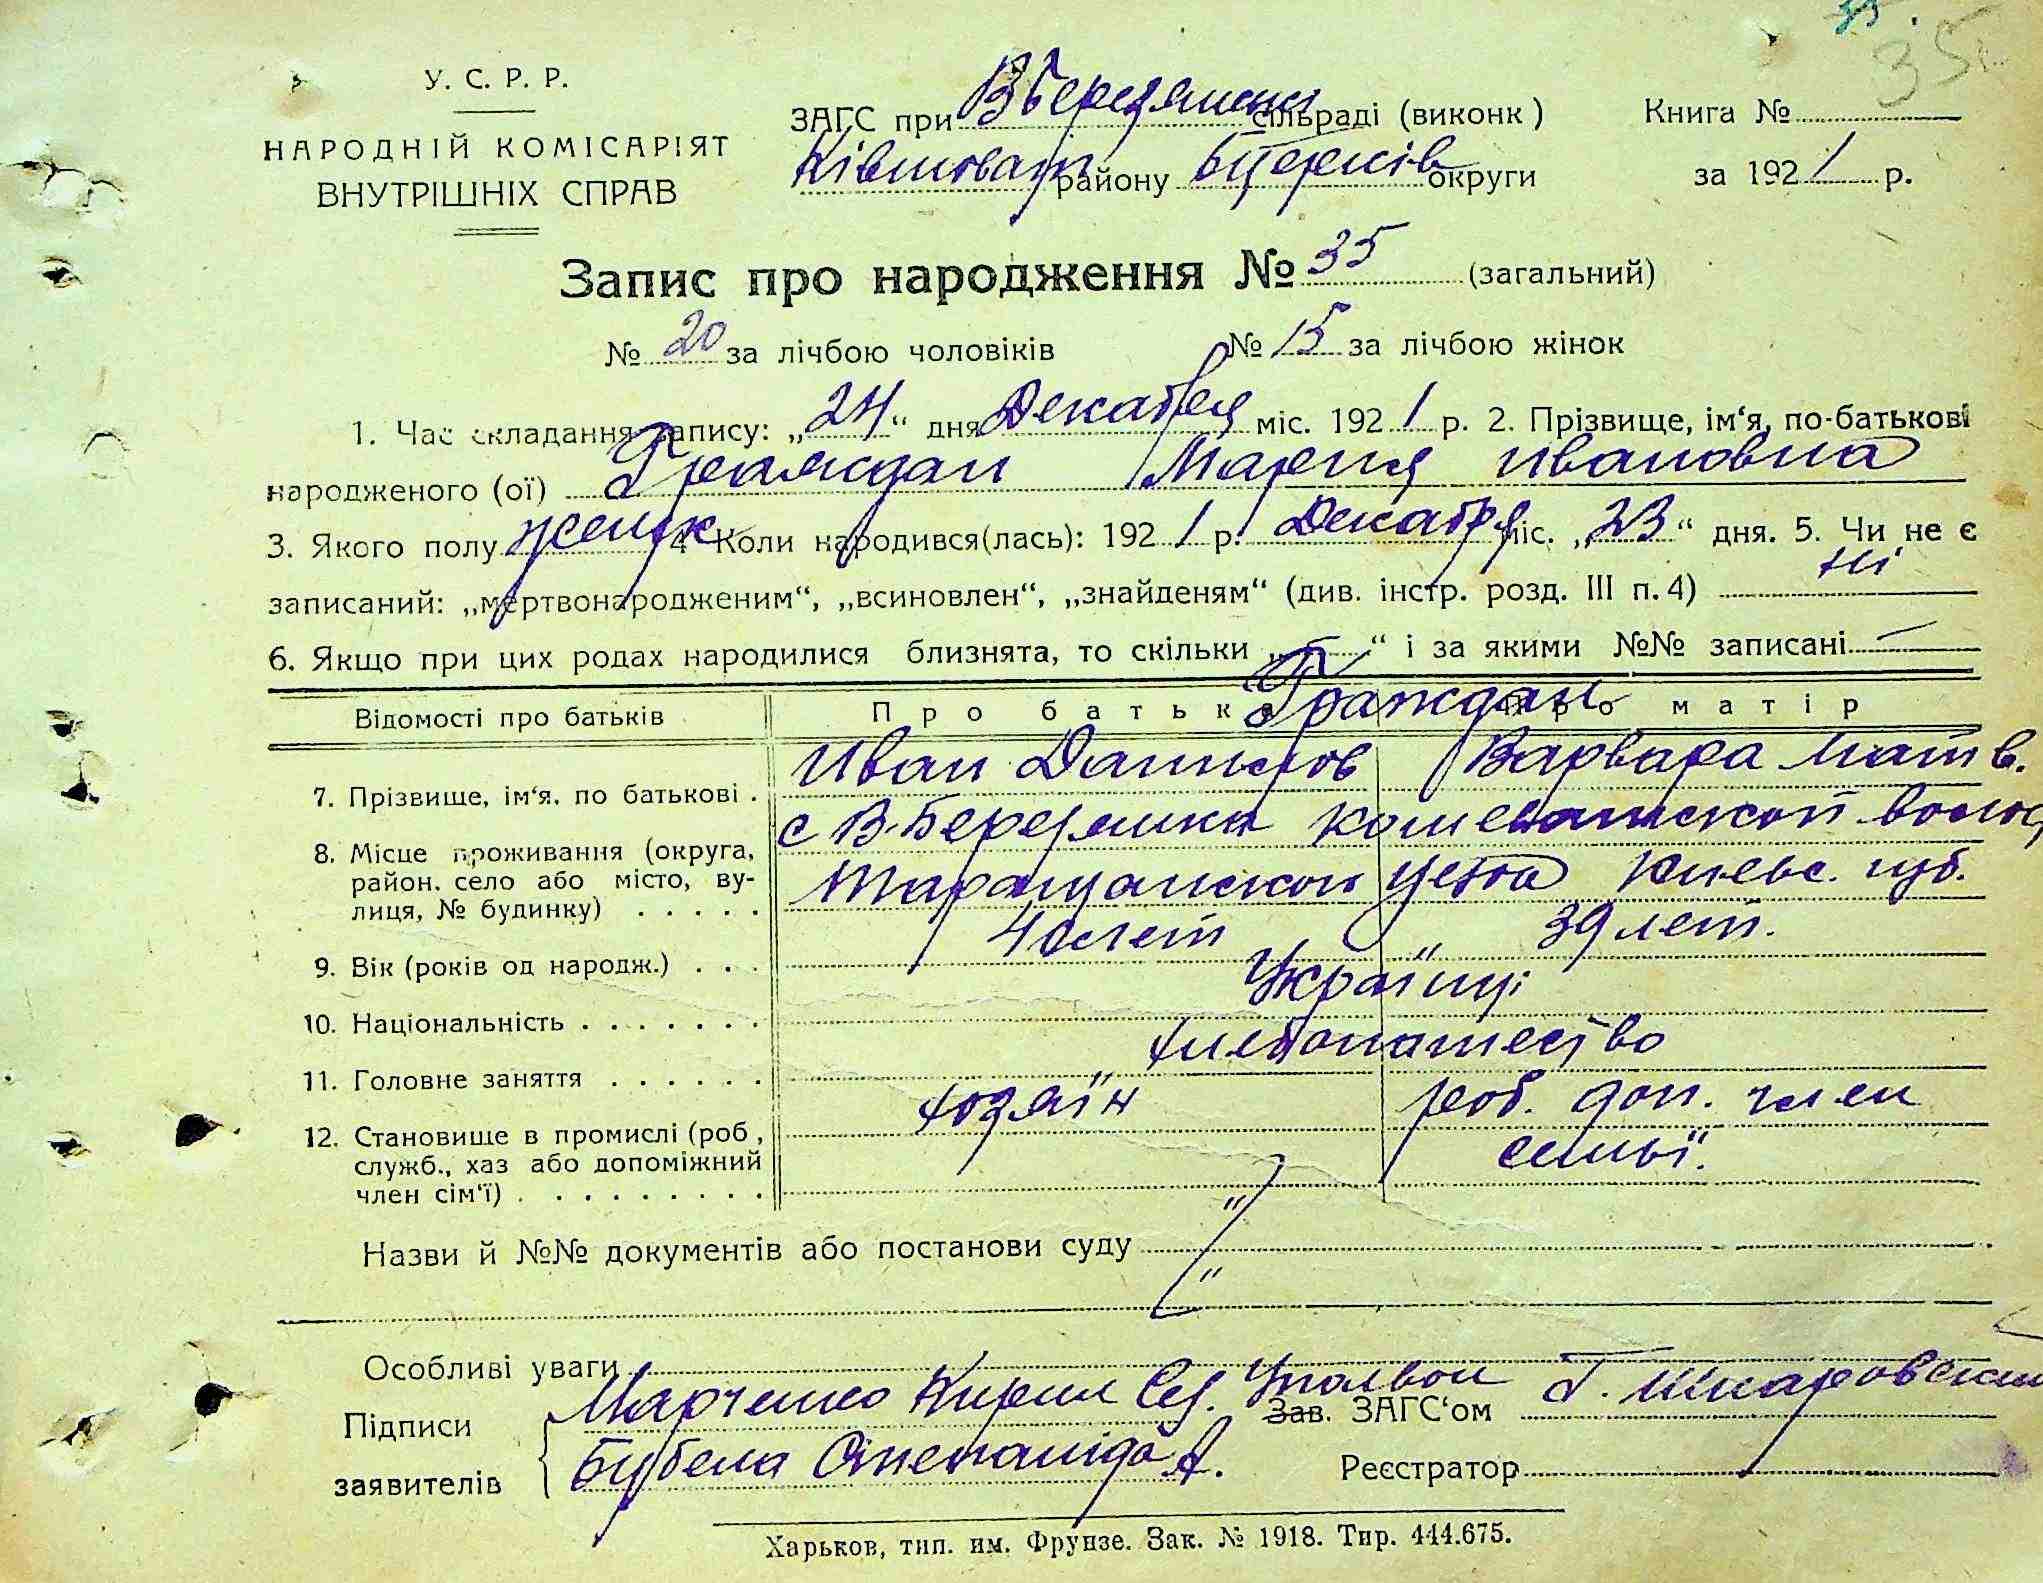 35.
35
У. С. Р. Р.
НАРОДНІЙ КОМІСАРІЯТ
ВНУТРІШНІХ СПРАВ
ЗАГС при ВБерезянськ сільраді (виконк)
Книга №
району Б Церків округи
за 1921 р.
Запис про народження № 35 (загальний)
№ 20 за лічбою чоловіків № 15 за лічбою жінок
1. Час складання запису: „24“ дня Декабря міс. 1921 р. 2. Прізвище, ім‘я, по-батькові
народженого (ої) Граждан Мария Ивановна
3. Якого полу женск 4 Коли народився(лась): 1921 р. Декабря міс. „23“ дня. 5. Чи не є
записаний: „мертвонародженим“, „всиновлен“, „знайденям“ (див. інстр. розд. III п. 4) ні
6. Якщо при цих родах народилися близнята, то скільки „—“ і за якими №№ записані —
Відомості про батьків Про батька Про матір
Граждан
7. Прізвище, ім‘я, по батькові . Иван Данилов Варвара Матв.
8. Місце проживання (округа, с В-Березянка Кошеватской волос
район, село або місто, ву- Таращанской уезда Киевс. губ.
лиця, № будинку) . . . . .
9. Вік (років од народж.) . . . 40 лет 39 лет.
10. Національність . . . . . . . Українці
11. Головне заняття . . . . . . хлебопашество
12. Становище в промислі (роб, хозяїн роб. доп. член
служб., хаз або допоміжний семьї.
член сім‘ї) . . . . . . . . .
Назви й №№ документів або постанови суду
Особливі уваги
Підписи Марченко Кирил Уполвои Зав. ЗАГС‘ом Г. Шкаровский
заявителів Бубела Степанида А. Реєстратор
Харьков, тип. им. Фрунзе. Зак. № 1918. Тир. 444.675.